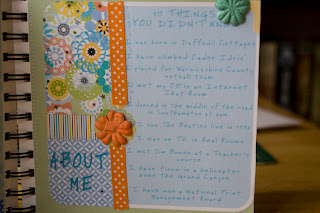 10 THINGS
YOU DIDN'T KNOW
I was born in Daffodil Cottage
I have climbed Cader Idris
I played for Warwickshire County
netball team
I met my OH in an Internet
Chat Room
I danced in the middle of the road
in Southampton at 3am
I saw The Beatles live in 1963
I was on TV in Real Rooms
I met Jim Bowen at a Teacher's
course
I have flown in a helicopter
over the Grand Canyon
I have won a National Trust
Management Award
ABOUT
ME